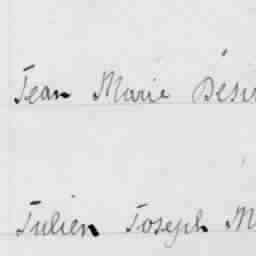 Jean Marie Dési
Julien Joseph M